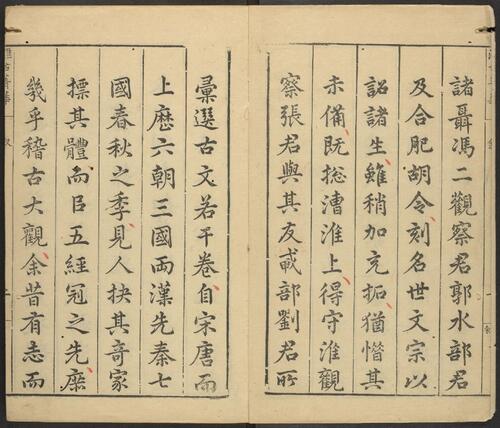 諸聶馮二觀察君郭水部君
及合肥胡令刻名世文宗以
詔諸生雖稍加充拓猶惜其
未備既総漕淮上得守淮觀
察張君與其友戴部劉君所
彙選古文若干卷自宋唐而
上歷六朝三國兩漢先秦七
國春秋之季見人抉其奇家
摽其體而㠯五經冠之先庶
幾乎稽古大觀余昔有志而